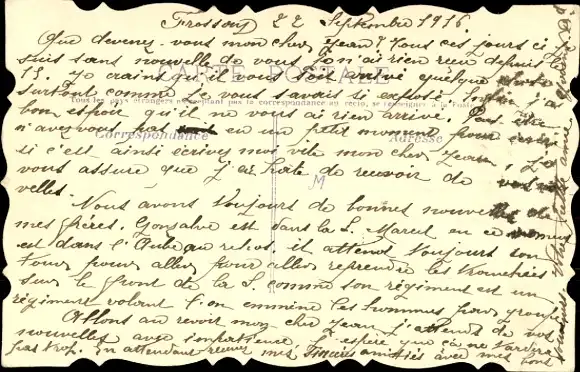 Frossay 22 Septembre 1916
Que devenez-vous mon cher Jean? Tous ces jours ci je
suis sans nouvelle de vous. Je n'ai rien reçu depuis le
15. Je crains qu'il vous soit arrivé quelque chose
CARTE POSTALE
surtout comme je vous savais si exposé. Enfin j'ai
Tous les pays étrangers n'acceptant pas la correspondance au recto, se renseigner à la Poste
bon espoir qu'il ne vous ai rien arrivé. Peut être
n'avez vous pas eu un petit moment pour écrire
Correspondance
Adresse
si c'est ainsi écrivez moi vite mon cher Jean, je
vous assure que j'ai hâte de recevoir de vos nou
velles.
M
Nous avons toujours de bonnes nouvelles de
mes frères. Gonzalve est dans la Marcel en ce
est dans l'Aube au repos, il attend toujours son
tour pour aller pour aller reprendre les tranchées
sur le front de la S. comme son régiment est un
régiment volant l'on emmène les hommes par groupe
Allons au revoir mon cher Jean j'attends de vos
nouvelles avec impatience. J'espère que ça ne tardera
pas trop. En attendant recevez mes sincères amitiés avec mes bons
souvenirs Votre petite amie